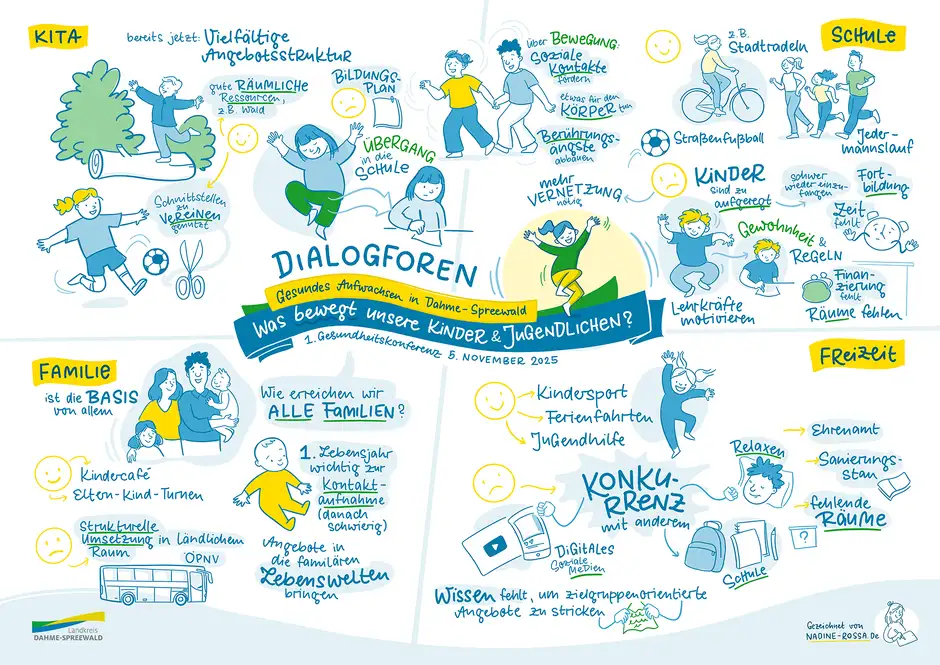 KITA
bereits jetzt: Vielfältige
Angebotsstruktur
gute RÄUMLICHE
Ressourcen,
z.B. Wald
BILDUNGS-
PLAN
ÜBERGANG
in die
SCHULE
Schnittstellen
zu
VEREINEN
genutzt
über BEWEGUNG:
Soziale
Kontakte
fördern
etwas für den
KÖRPER tun
Berührungs-
ängste
abbauen
mehr
VERNETZUNG
nötig
SCHULE
z.B.
Stadtradeln
Straßenfußball
Jeder-
mannslauf
KINDER
sind zu
aufgeregt
schwer
wieder einzu-
fangen
Fort-
bildung
Zeit
fehlt
Gewohnheit &
REGELN
Lehrkräfte
motivieren
Finan-
zierung
fehlt
Räume fehlen
DIALOGFOREN
Gesundes Aufwachsen in Dahme-Spreewald
Was bewegt unsere KINDER & JUGENDLICHEN?
1. Gesundheitskonferenz 5. NOVEMBER 2025
FAMILIE
ist die BASIS
von allem
Wie erreichen wir
ALLE FAMILIEN?
Kindercafé
Eltern-Kind-Turnen
Strukturelle
Umsetzung in Ländlichem
Raum
ÖPNV
1. Lebensjahr
wichtig zur
Kontakt-
aufnahme
(danach
schwierig)
Angebote in
die familären
Lebenswelten
bringen
FREIZEIT
Kindersport
Ferienfahrten
Jugendhilfe
KONKU-
RRENZ
mit anderem
Relaxen
DIGITALES
Soziale
Medien
SCHULE
?
Ehrenamt
Sanierungs-
stau
fehlende
RÄUME
Wissen fehlt, um zielgruppenorientierte
Angebote zu stricken
Landkreis
DAHME-SPREEWALD
Gezeichnet von
NADINE-ROSSA.De